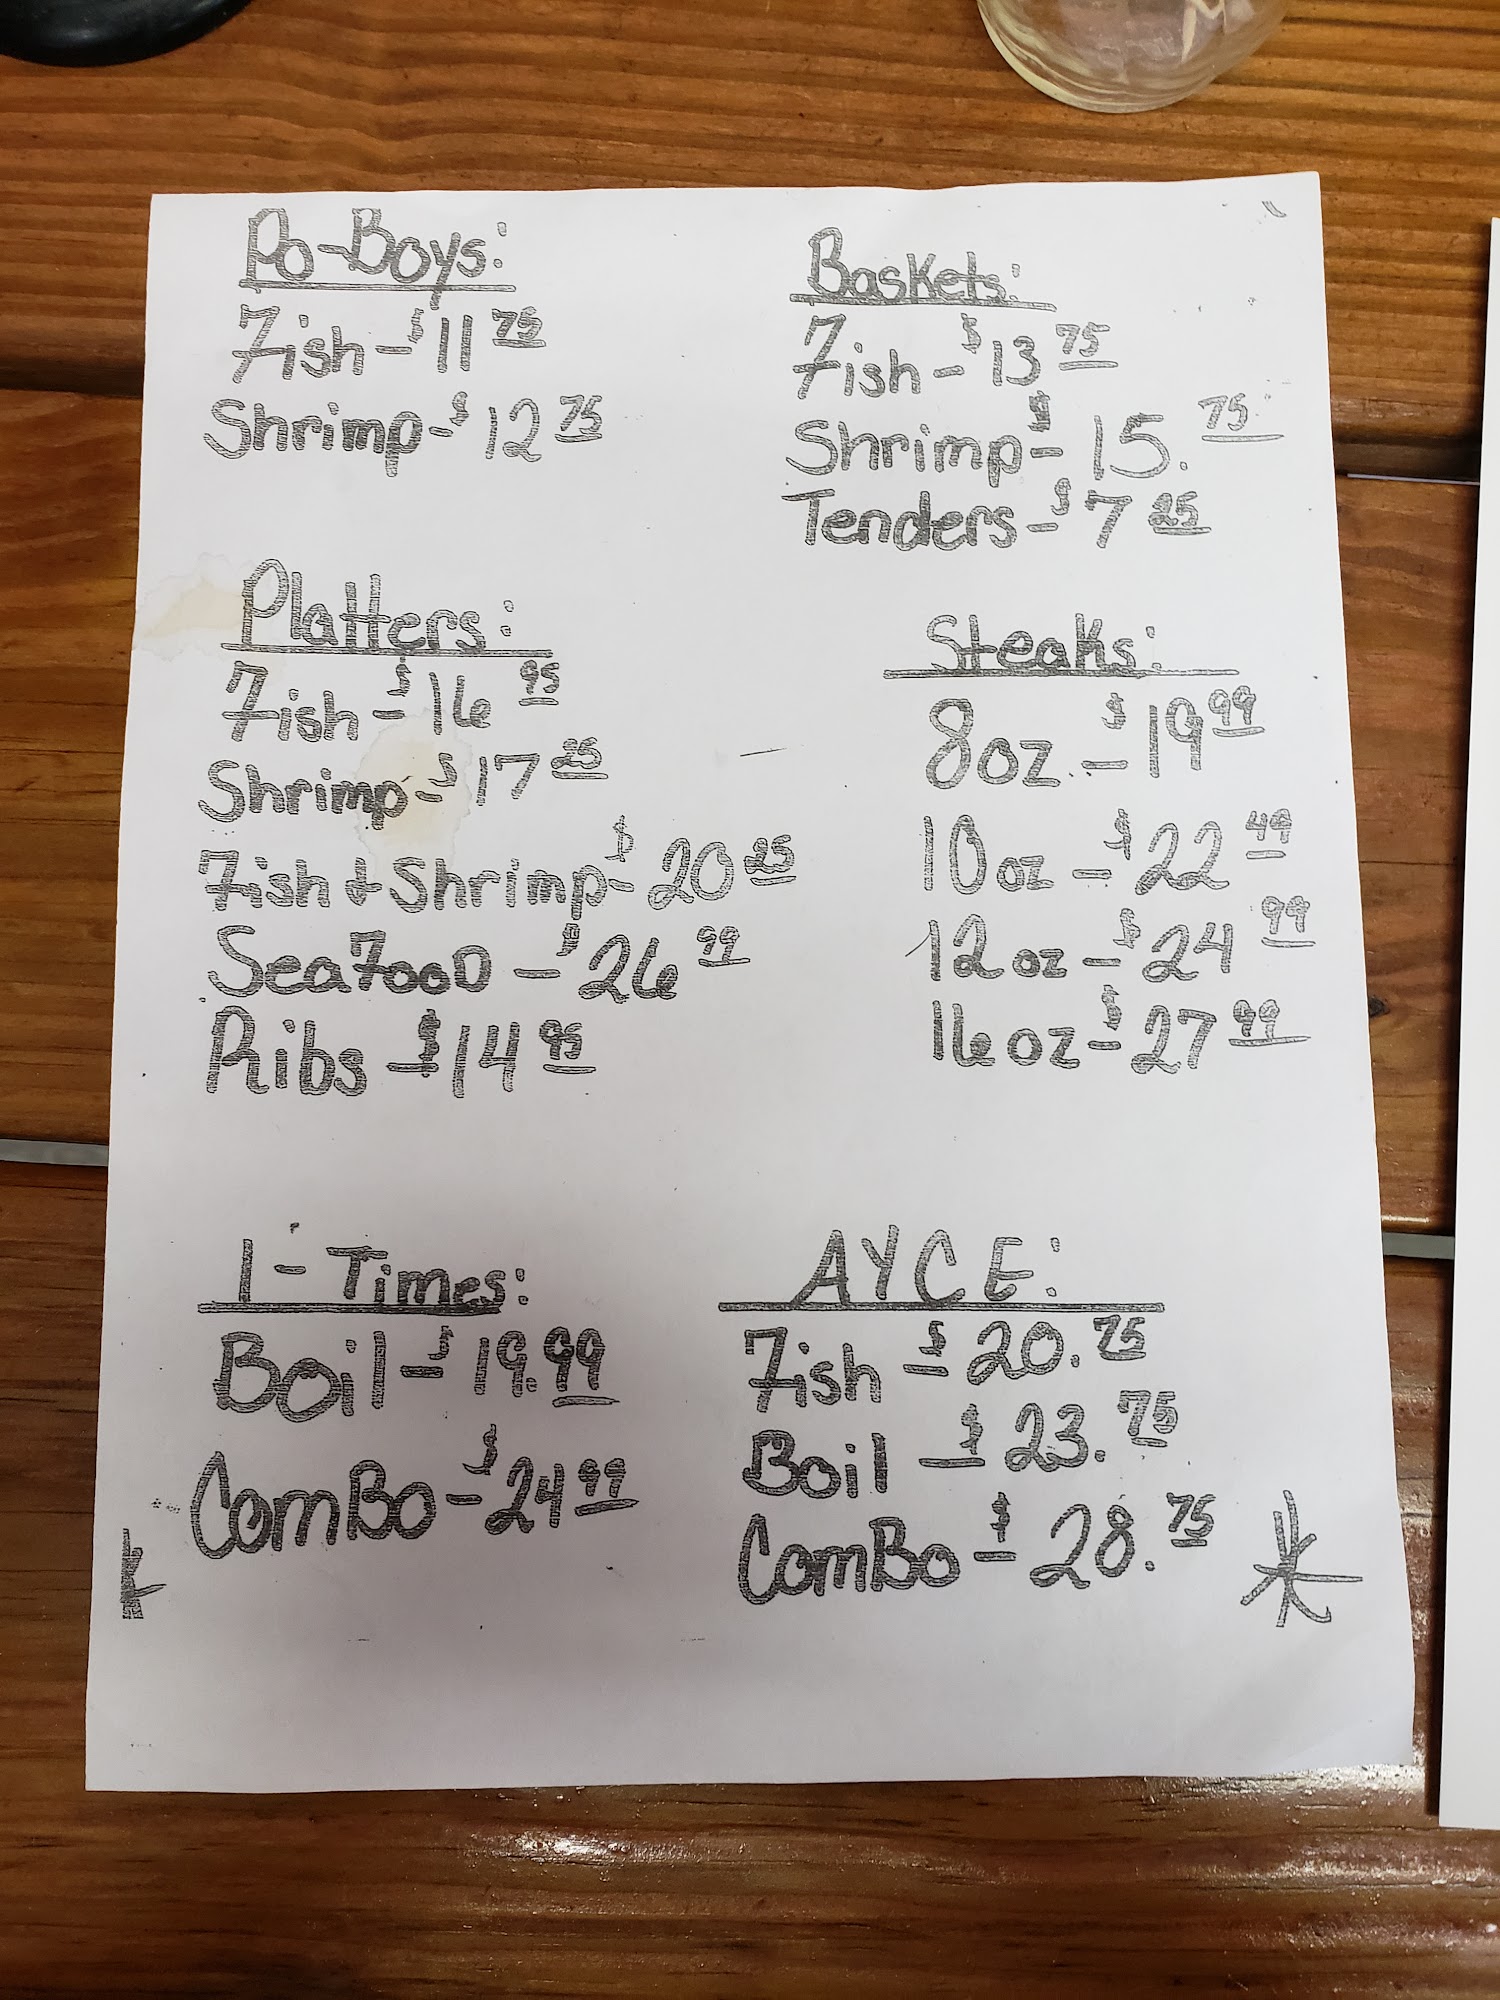 Po-Boys:
Fish - $11 75
Shrimp - $12 75
Baskets:
Fish - $13 75
Shrimp - $15. 75
Tenders - $7 25
Platters:
Fish - $16 95
Shrimp - $17 25
Fish & Shrimp - $20 25
SeafooD - $26 99
Ribs - $14 95
Steaks:
8oz - $19 99
10oz - $22 49
12oz - $24 99
16oz - $27 99
1 - Times:
Boil - $19.99
ComBo - $24 99
AYCE:
Fish - $20. 75
Boil - $23. 75
ComBo - $28. 75